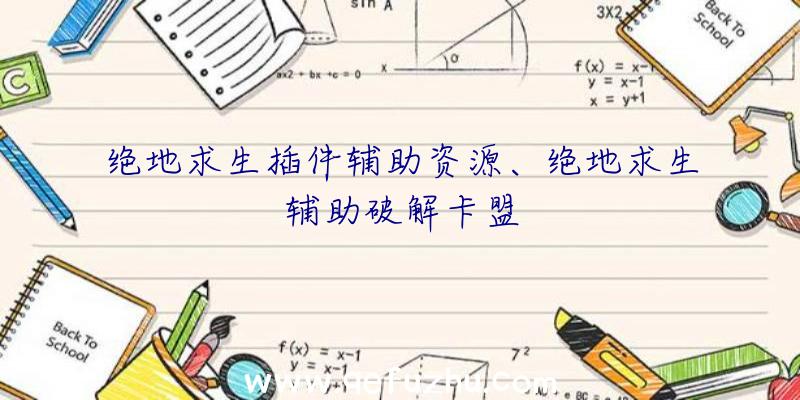 sin A
3X2
Back To
School
C
ax2 + bx +c = 0
x
α
f(x) = x-1
y = x-1
x = y+1
绝地求生插件辅助资源、绝地求生
辅助破解卡盟
Back To
School
f(x) = x-1
y = x-1
7²